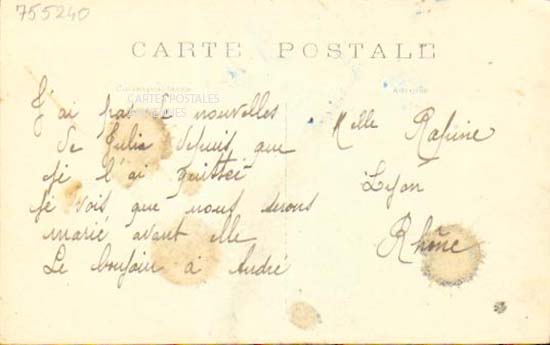 755240
CARTE POSTALE
Correspondance
Adresse
CARTES POSTALES
ANCIENNES
J'ai pas de nouvelles
de Julia depuis que
je l'ai quitté
je vois que nous serons
marié avant elle
Le bonjour à André
Melle Rafine
Lyon
Rhône